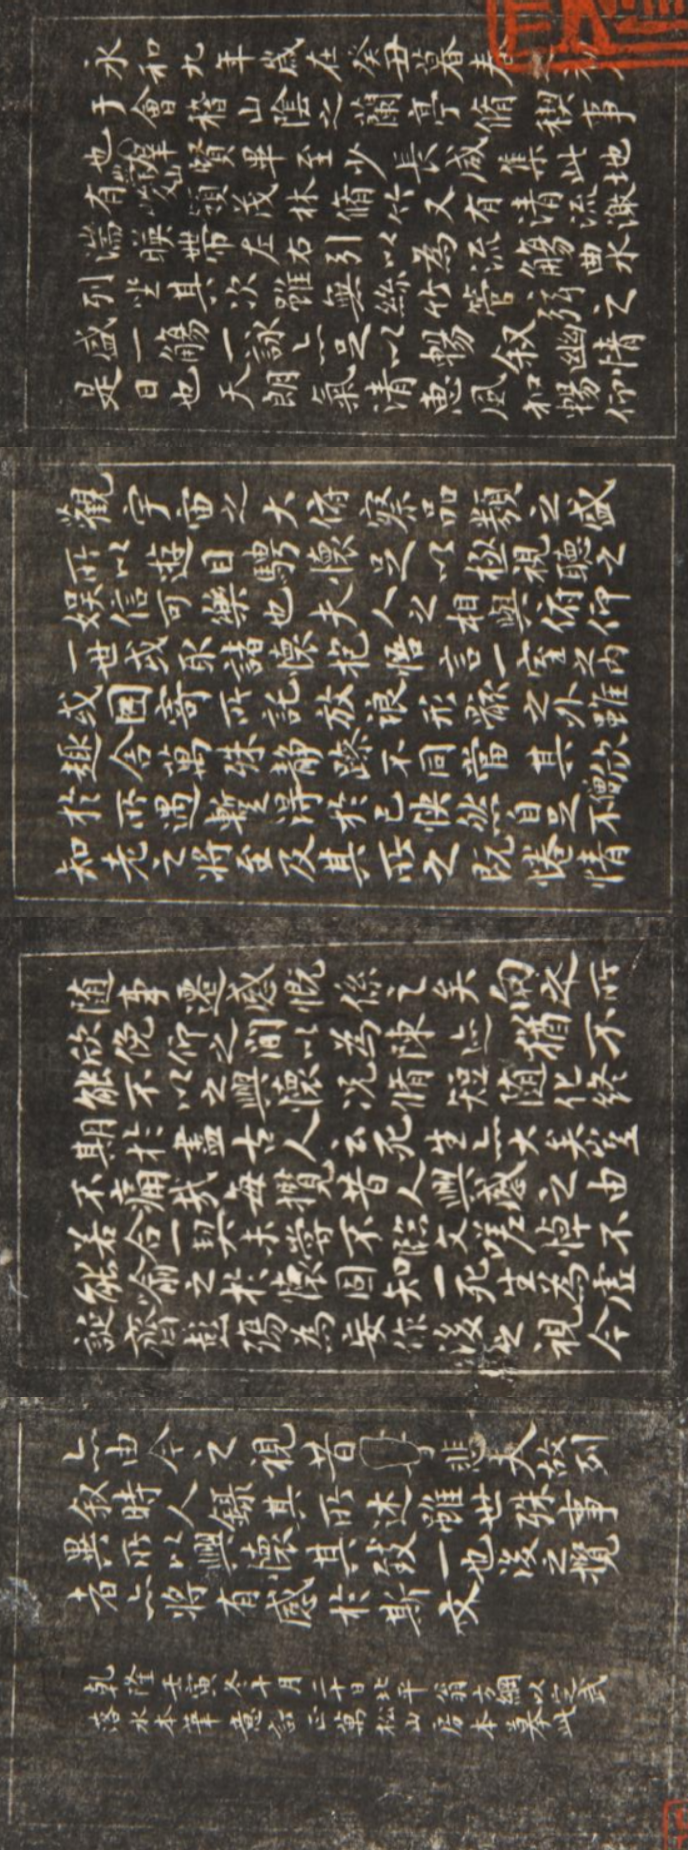 永和九年歲在癸丑暮春之初
于會稽山陰之蘭亭脩稧事
也羣賢畢至少長咸集此地
有崇山峻領茂林脩竹又有清流激
湍暎帶左右引以為流觴曲水
列坐其次雖無絲竹管弦之
盛一觴一詠亦足以暢叙幽情
是日也天朗氣清惠風和暢仰
觀宇宙之大俯察品類之盛
所以遊目騁懷足以極視聽之
娛信可樂也夫人之相與俯仰
一世或取諸懷抱悟言一室之內
或因寄所託放浪形骸之外雖
趣舍萬殊靜躁不同當其欣
於所遇暫得於己快然自足不
知老之將至及其所之既惓情
隨事遷感慨係之矣向之所
欣俛仰之間以為陳迹猶不
能不以之興懷況脩短隨化終
期於盡古人云死生亦大矣豈
不痛哉每攬昔人興感之由
若合一契未嘗不臨文嗟悼不
能喻之於懷固知一死生為虛
誕齊彭殤為妄作後之視今
亦由今之視昔悲夫故列
叙時人錄其所述雖世殊事
異所以興懷其致一也後之攬
者亦將有感於斯文
乾隆壬寅冬十月二十日北平翁方綱以定武
落水本筆意萬松山房本摹此